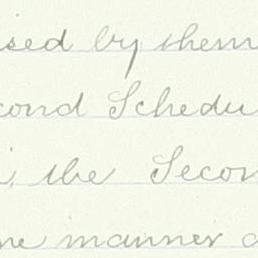 ised by them
cond Schedu
, the Secon
me manner a